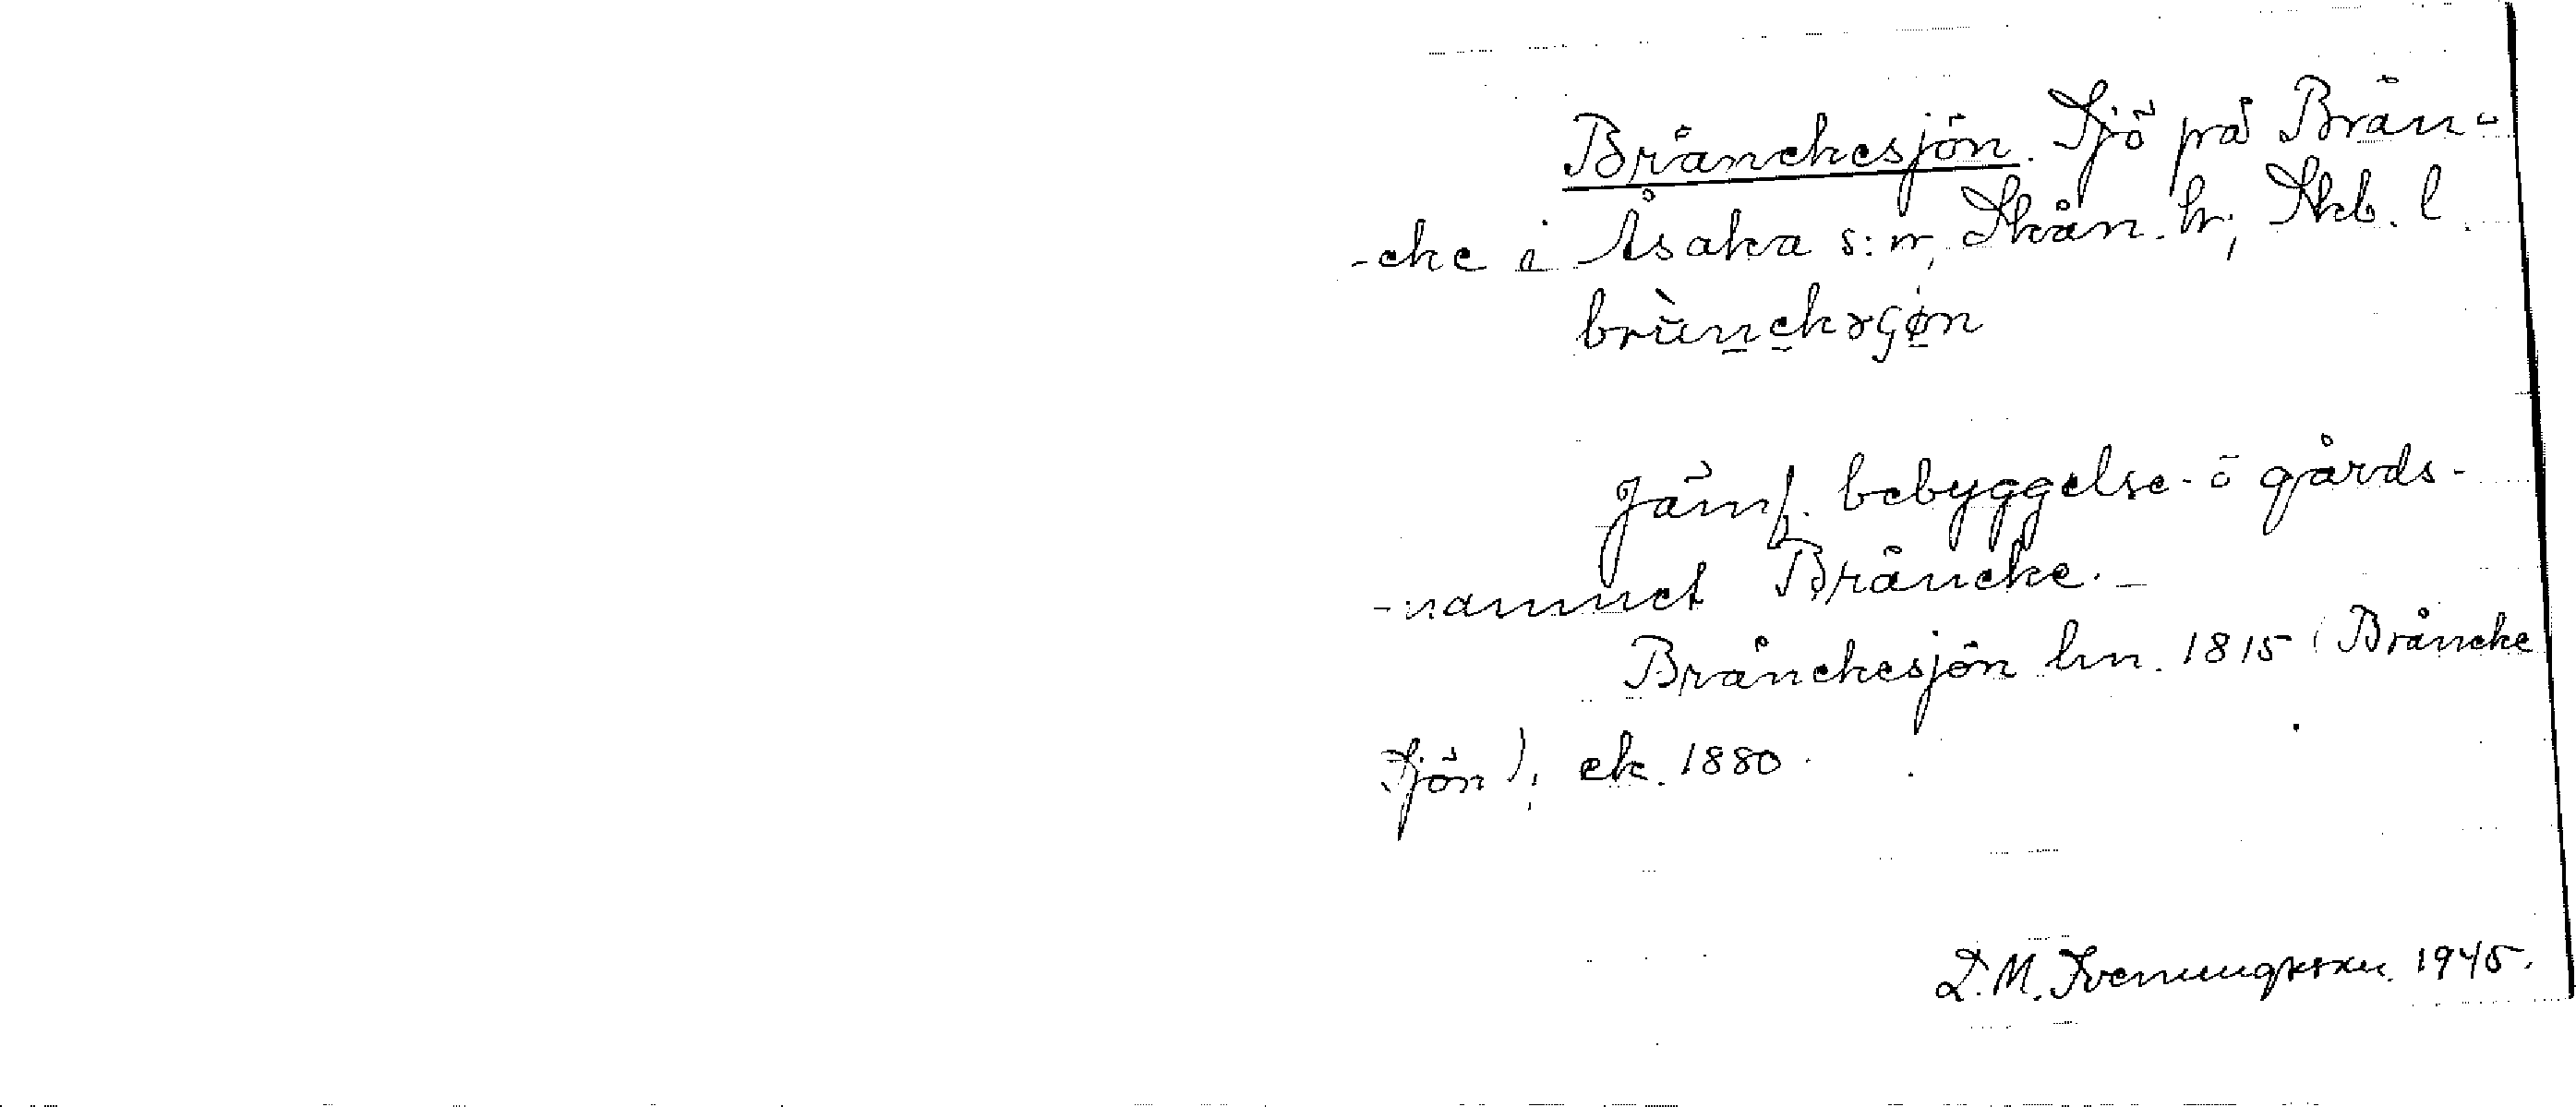 Bråneckesjön. Sjö på Brån-
-ecke i Åsaka s:n, Skån. hr, Skb. l.
Jämf. bebyggelse- o gårds-
-namnet Brånecke. -
Bråneckesjön hm. 1815 (Bråneke
Sjön), ek. 1880.
D.M. Svenungsson 1945.